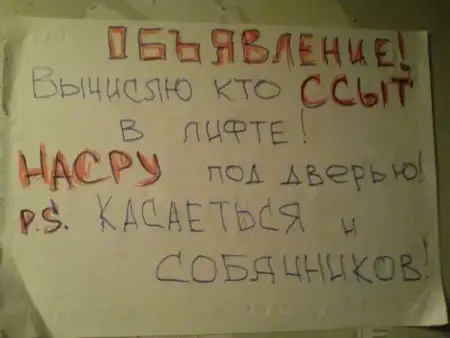 ОБЪЯВЛЕНИЕ!
ВЫЧИСЛЮ КТО ССЫТ
В ЛИФТЕ!
НАСРУ ПОД ДВЕРЬЮ!
P.S. КАСАЕТЬСЯ И
СОБАЧНИКОВ!